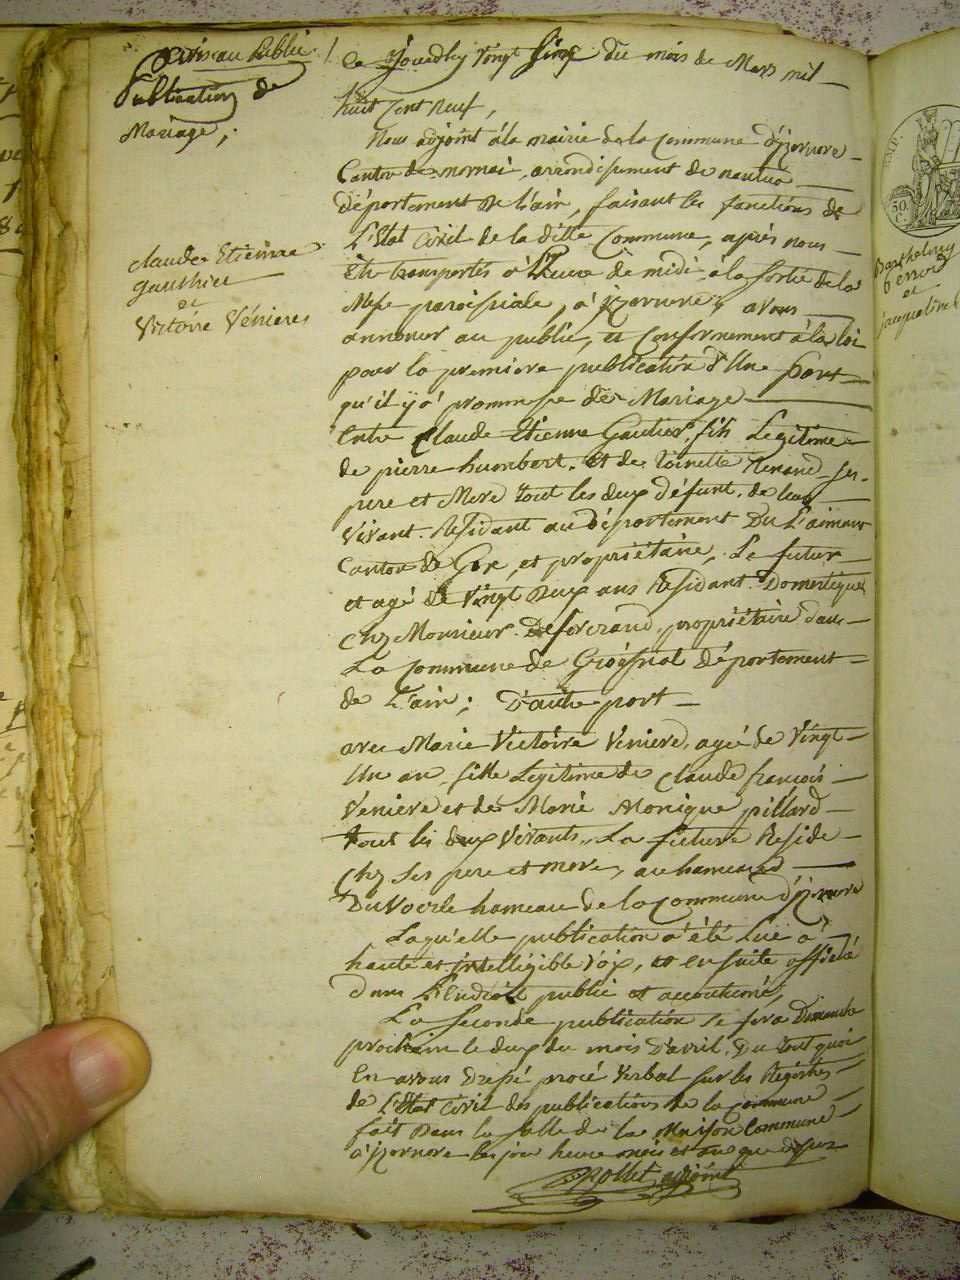 Avis au Public /.
Publication de
Mariage ;
Claude Etienne
Gauthier
et
Victoire Vénière
Ce Jouedhy vingt Sinq du mois de Mars mil
huit Cent neuf,
Nous adjoint á la mairie de la Commune d'izernore
Canton de mornai, arrondisement de nantua
département de L'ain, faisant les fonctions de
L'Etat Civil de la ditte Commune, après nous
Etre transportés á L'heure de midi á la Sortie de la
Messe paroisiale, á izernore, avons
annoncer au public, et Conformement á la loi
pour la premiere publication d'Une part
qu'il y á prommesse de Mariage
Entre Claude Etienne Gautier, fils Legitime
de pierre humbert, Et de Toinette Renand Ses
pere et Mere tout les deux défunt, de leur
Vivant Residant au département Du L'aiman
Canton de Gex, et propriétaire, Le futur
et agé de Vingt Deux ans Residant Domestique
Chez Monsieur Deforcrand, propriétaire dans
La Commune de Groissiat Département
de L'ain ; D'autre port
avec Marie Victoire Veniere, ageé de Vingt
Un an, fille Legitime de Claude françois
Veniere et de Marie Monique pillard
tout les deux Vivants, La future Reside
Chez Ses pere et mere, au hameaud
Du Voerle hameau de la Commune d'izernore
Laqu'elle publication á été Lue á
haute et intelligible Voix, et en suite affiché
dans L'Endroit public et accoutumé,
La Seconde publication se fera Dimanche
prochain le deux du mois D'avril, Du tout quoi
En avons Dressé procé Verbal sur les Régistres
de L'Etat Civil des publications de la Commune
fait Dans la Salle de la Maison Commune
á izernore les jour heure mois et an que dessus
Pollet adjoint
50
C.
Barthelemy
et
jacqueline